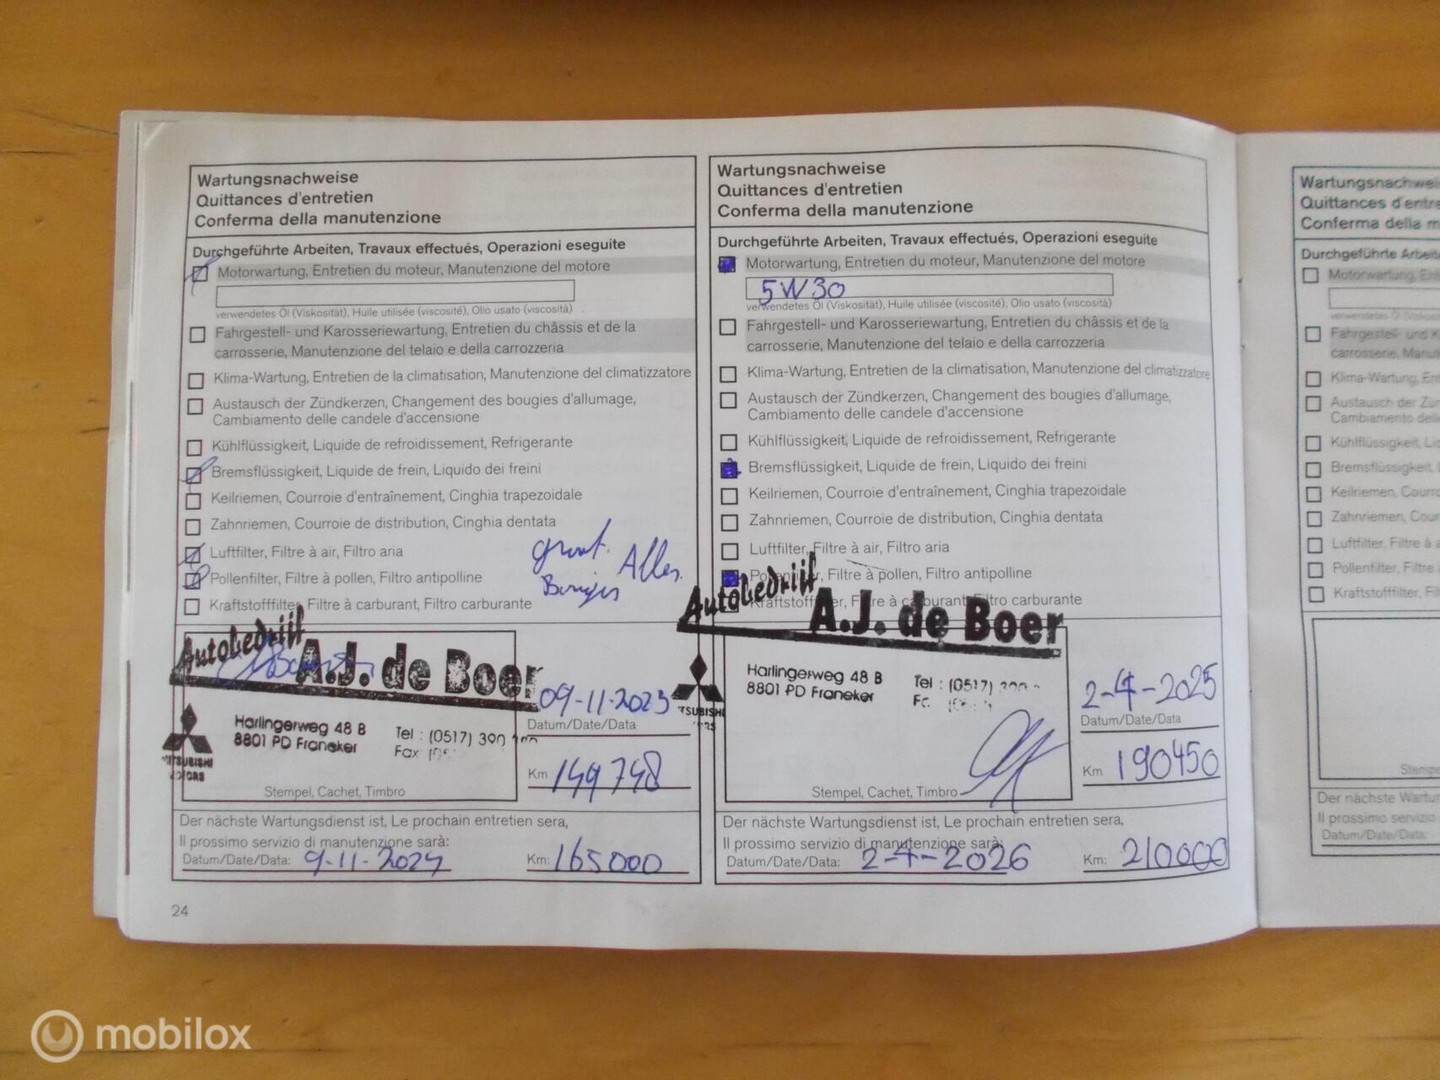 Wartungsnachweise
Quittances d'entretien
Conferma della manutenzione
Durchgeführte Arbeiten, Travaux effectués, Operazioni eseguite
Motorwartung, Entretien du moteur, Manutenzione del motore
verwendetes Öl (Viskosität), Huile utilisée (viscosité), Olio usato (viscosità)
Fahrgestell- und Karosseriewartung, Entretien du châssis et de la
carrosserie, Manutenzione del telaio e della carrozzeria
Klima-Wartung, Entretien de la climatisation, Manutenzione del climatizzatore
Austausch der Zündkerzen, Changement des bougies d'allumage,
Cambiamento delle candele d'accensione
Kühlflüssigkeit, Liquide de refroidissement, Refrigerante
Bremsflüssigkeit, Liquide de frein, Liquido dei freini
Keilriemen, Courroie d'entraînement, Cinghia trapezoidale
Zahnriemen, Courroie de distribution, Cinghia dentata
Luftfilter, Filtre à air, Filtro aria
Pollenfilter, Filtre à pollen, Filtro antipolline
Kraftstofffilter, Filtre à carburant, Filtro carburante
Autobedrijf A.J. de Boer
MITSUBISHI
MOTORS
Harlingerweg 48 B
8801 PD Franeker
Tel : (0517) 390
Fax
09-11-2023
Datum/Date/Data
Km 149748
Stempel, Cachet, Timbro
Der nächste Wartungsdienst ist, Le prochain entretien sera,
Il prossimo servizio di manutenzione sarà:
Datum/Date/Data: 9-11-2024 Km: 165000
24
Wartungsnachweise
Quittances d'entretien
Conferma della manutenzione
Durchgeführte Arbeiten, Travaux effectués, Operazioni eseguite
Motorwartung, Entretien du moteur, Manutenzione del motore
5W30
verwendetes Öl (Viskosität), Huile utilisée (viscosité), Olio usato (viscosità)
Fahrgestell- und Karosseriewartung, Entretien du châssis et de la
carrosserie, Manutenzione del telaio e della carrozzeria
Klima-Wartung, Entretien de la climatisation, Manutenzione del climatizzatore
Austausch der Zündkerzen, Changement des bougies d'allumage,
Cambiamento delle candele d'accensione
Kühlflüssigkeit, Liquide de refroidissement, Refrigerante
Bremsflüssigkeit, Liquide de frein, Liquido dei freini
Keilriemen, Courroie d'entraînement, Cinghia trapezoidale
Zahnriemen, Courroie de distribution, Cinghia dentata
Luftfilter, Filtre à air, Filtro aria
Pollenfilter, Filtre à pollen, Filtro antipolline
Kraftstofffilter, Filtre à carburant, Filtro carburante
Autobedrijf A.J. de Boer
Harlingerweg 48 B
8801 PD Franeker
Tel : (0517)
2-4-2025
Datum/Date/Data
Km 190450
Stempel, Cachet, Timbro
Der nächste Wartungsdienst ist, Le prochain entretien sera,
Il prossimo servizio di manutenzione sarà:
Datum/Date/Data: 2-4-2026 Km: 210000
Quittances
Conferma della
Durchgeführte
Klima-Wartung,
Austausch der
Cambiamento
Kühlflüssigkeit,
Bremsflüssigkeit,
Keilriemen,
Zahnriemen,
Luftfilter, Filtre à
Pollenfilter,
Kraftstofffilter,
Der nächste
Il prossimo servizio
Datum/Date/
mobilox